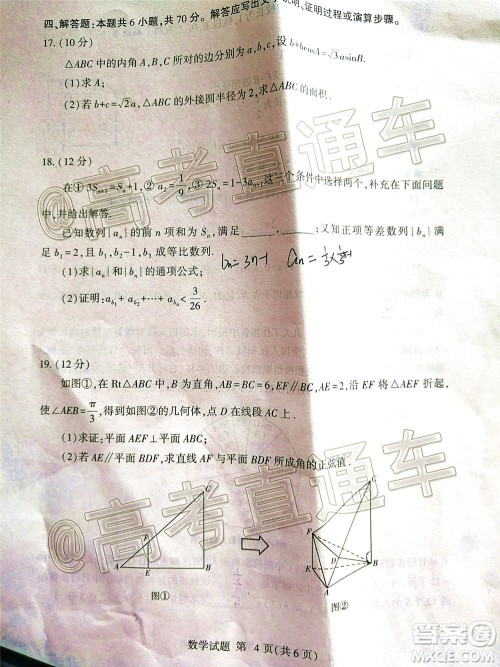 四、解答题:本题共6小题,共70分。解答应写出文字说明、证明过程或演算步骤。
17.(10分)
△ABC中的内角A,B,C的对边分别为a,b,c,b+bcosA=√3asinB.
(1)求A;
(2)若b+c=√2a,△ABC的外接圆半径为2,求△ABC的面积.
18.(12分)
在①3Sₙ₊₁=Sₙ+1,②a₂=1/9,③2Sₙ=1-3aₙ₊₁这三个条件中选择两个,补充在下面问题
中,并给出解答.
已知数列{aₙ}的前n项和为Sₙ,满足____,____;又知正项等差数列{bₙ}
满足b₁=2,且b₁,b₂-1,b₃成等比数列.
bn=3n-1
(1)求{aₙ}和{bₙ}的通项公式;
(2)证明:a_b₁+a_b₂+…+a_bₙ<3/26.
19.(12分)
如图①,在Rt△ABC中,B为直角,AB=BC=6,EF∥BC,AE=2,沿EF将△AEF折起,
使∠AEB=π/3,得到如图②的几何体,点D在线段AC上.
(1)求证:平面AEF⊥平面ABC;
(2)若AE∥平面BDF,求直线AF与平面BDF所成角的正弦值.
C
F
A
E
B
图①
C
F
E
D
A
B
图②
数学试题 第 4 页(共 6 页)
@高考直通车
@高考直通车
@高考直通车
作业帮